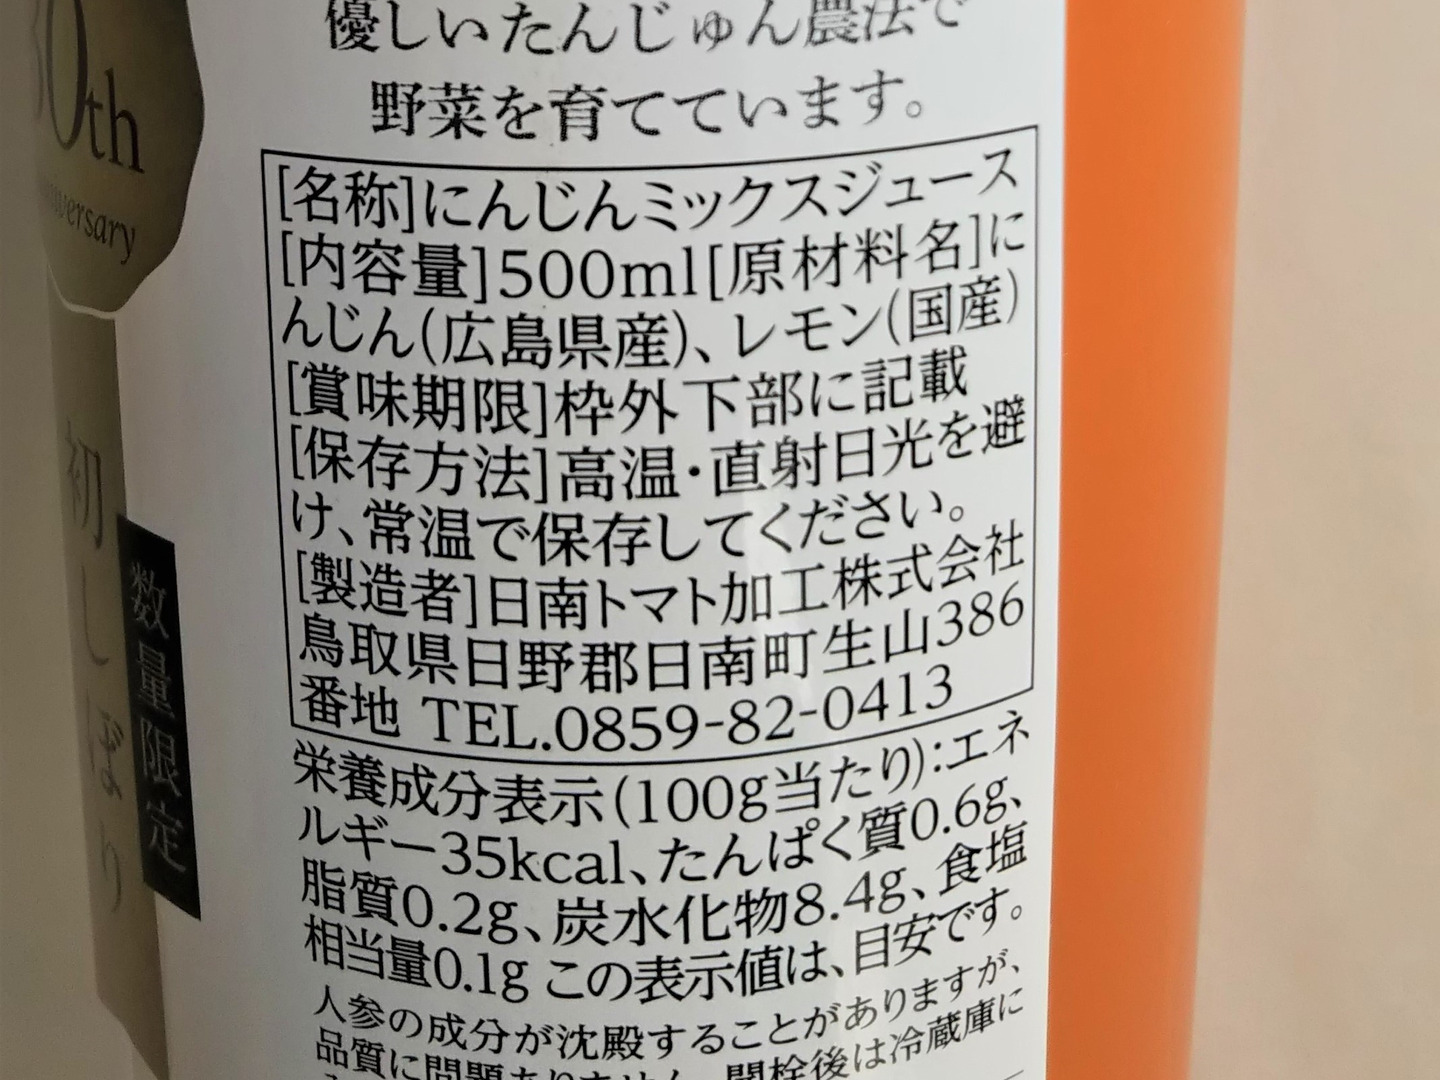 優しいたんじゅん農法で
野菜を育てています。
[名称]にんじんミックスジュース
[内容量]500ml[原材料名]に
んじん(広島県産)、レモン(国産)
[賞味期限]枠外下部に記載
[保存方法]高温・直射日光を避
け、常温で保存してください。
[製造者]日南トマト加工株式会社
鳥取県日野郡日南町生山386
番地 TEL.0859-82-0413
栄養成分表示(100g当たり):エネ
ルギー35kcal、たんぱく質0.6g、
脂質0.2g、炭水化物8.4g、食塩
相当量0.1g この表示値は、目安です。
人参の成分が沈殿することがありますが、
品質に問題ありません。開栓後は冷蔵庫に
30th
初しぼり
数量限定